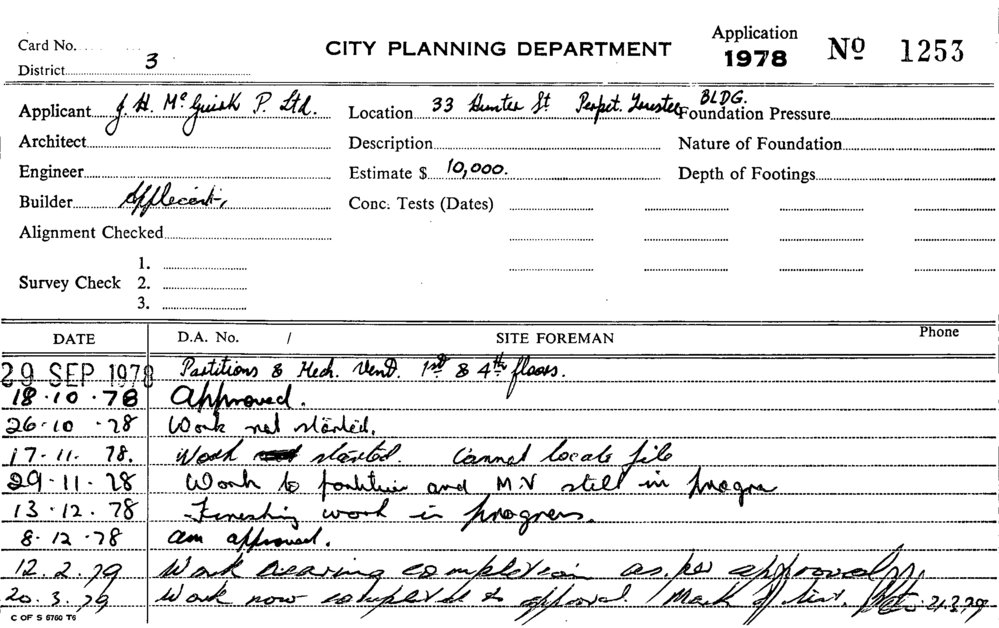 Card No.
CITY PLANNING DEPARTMENT
Application
1978
Nº 1253
District 3
Applicant J. H. McGuirk P. Ltd. Location 33 Hunter St Perpet. Trustee BLDG. Foundation Pressure
Architect Description Nature of Foundation
Engineer Estimate $ 10,000. Depth of Footings
Builder Applicant, Conc. Tests (Dates)
Alignment Checked
1.
Survey Check 2.
3.
DATE D.A. No. / SITE FOREMAN Phone
29 SEP 1978 Partitions & Mech. Vent. 1st & 4th floors.
18.10.78 Approved.
26.10.78 Work not started.
17.11.78. Work started. Cannot locate file
29.11.78 Work to partition and M.V still in progra
13.12.78 Finishing work in progress.
8.12.78 am approved.
12.2.79 Work nearing completion as per approval
20.3.79 Work now completed to approval. Mark off 21.3.79
C OF S 6760 T6